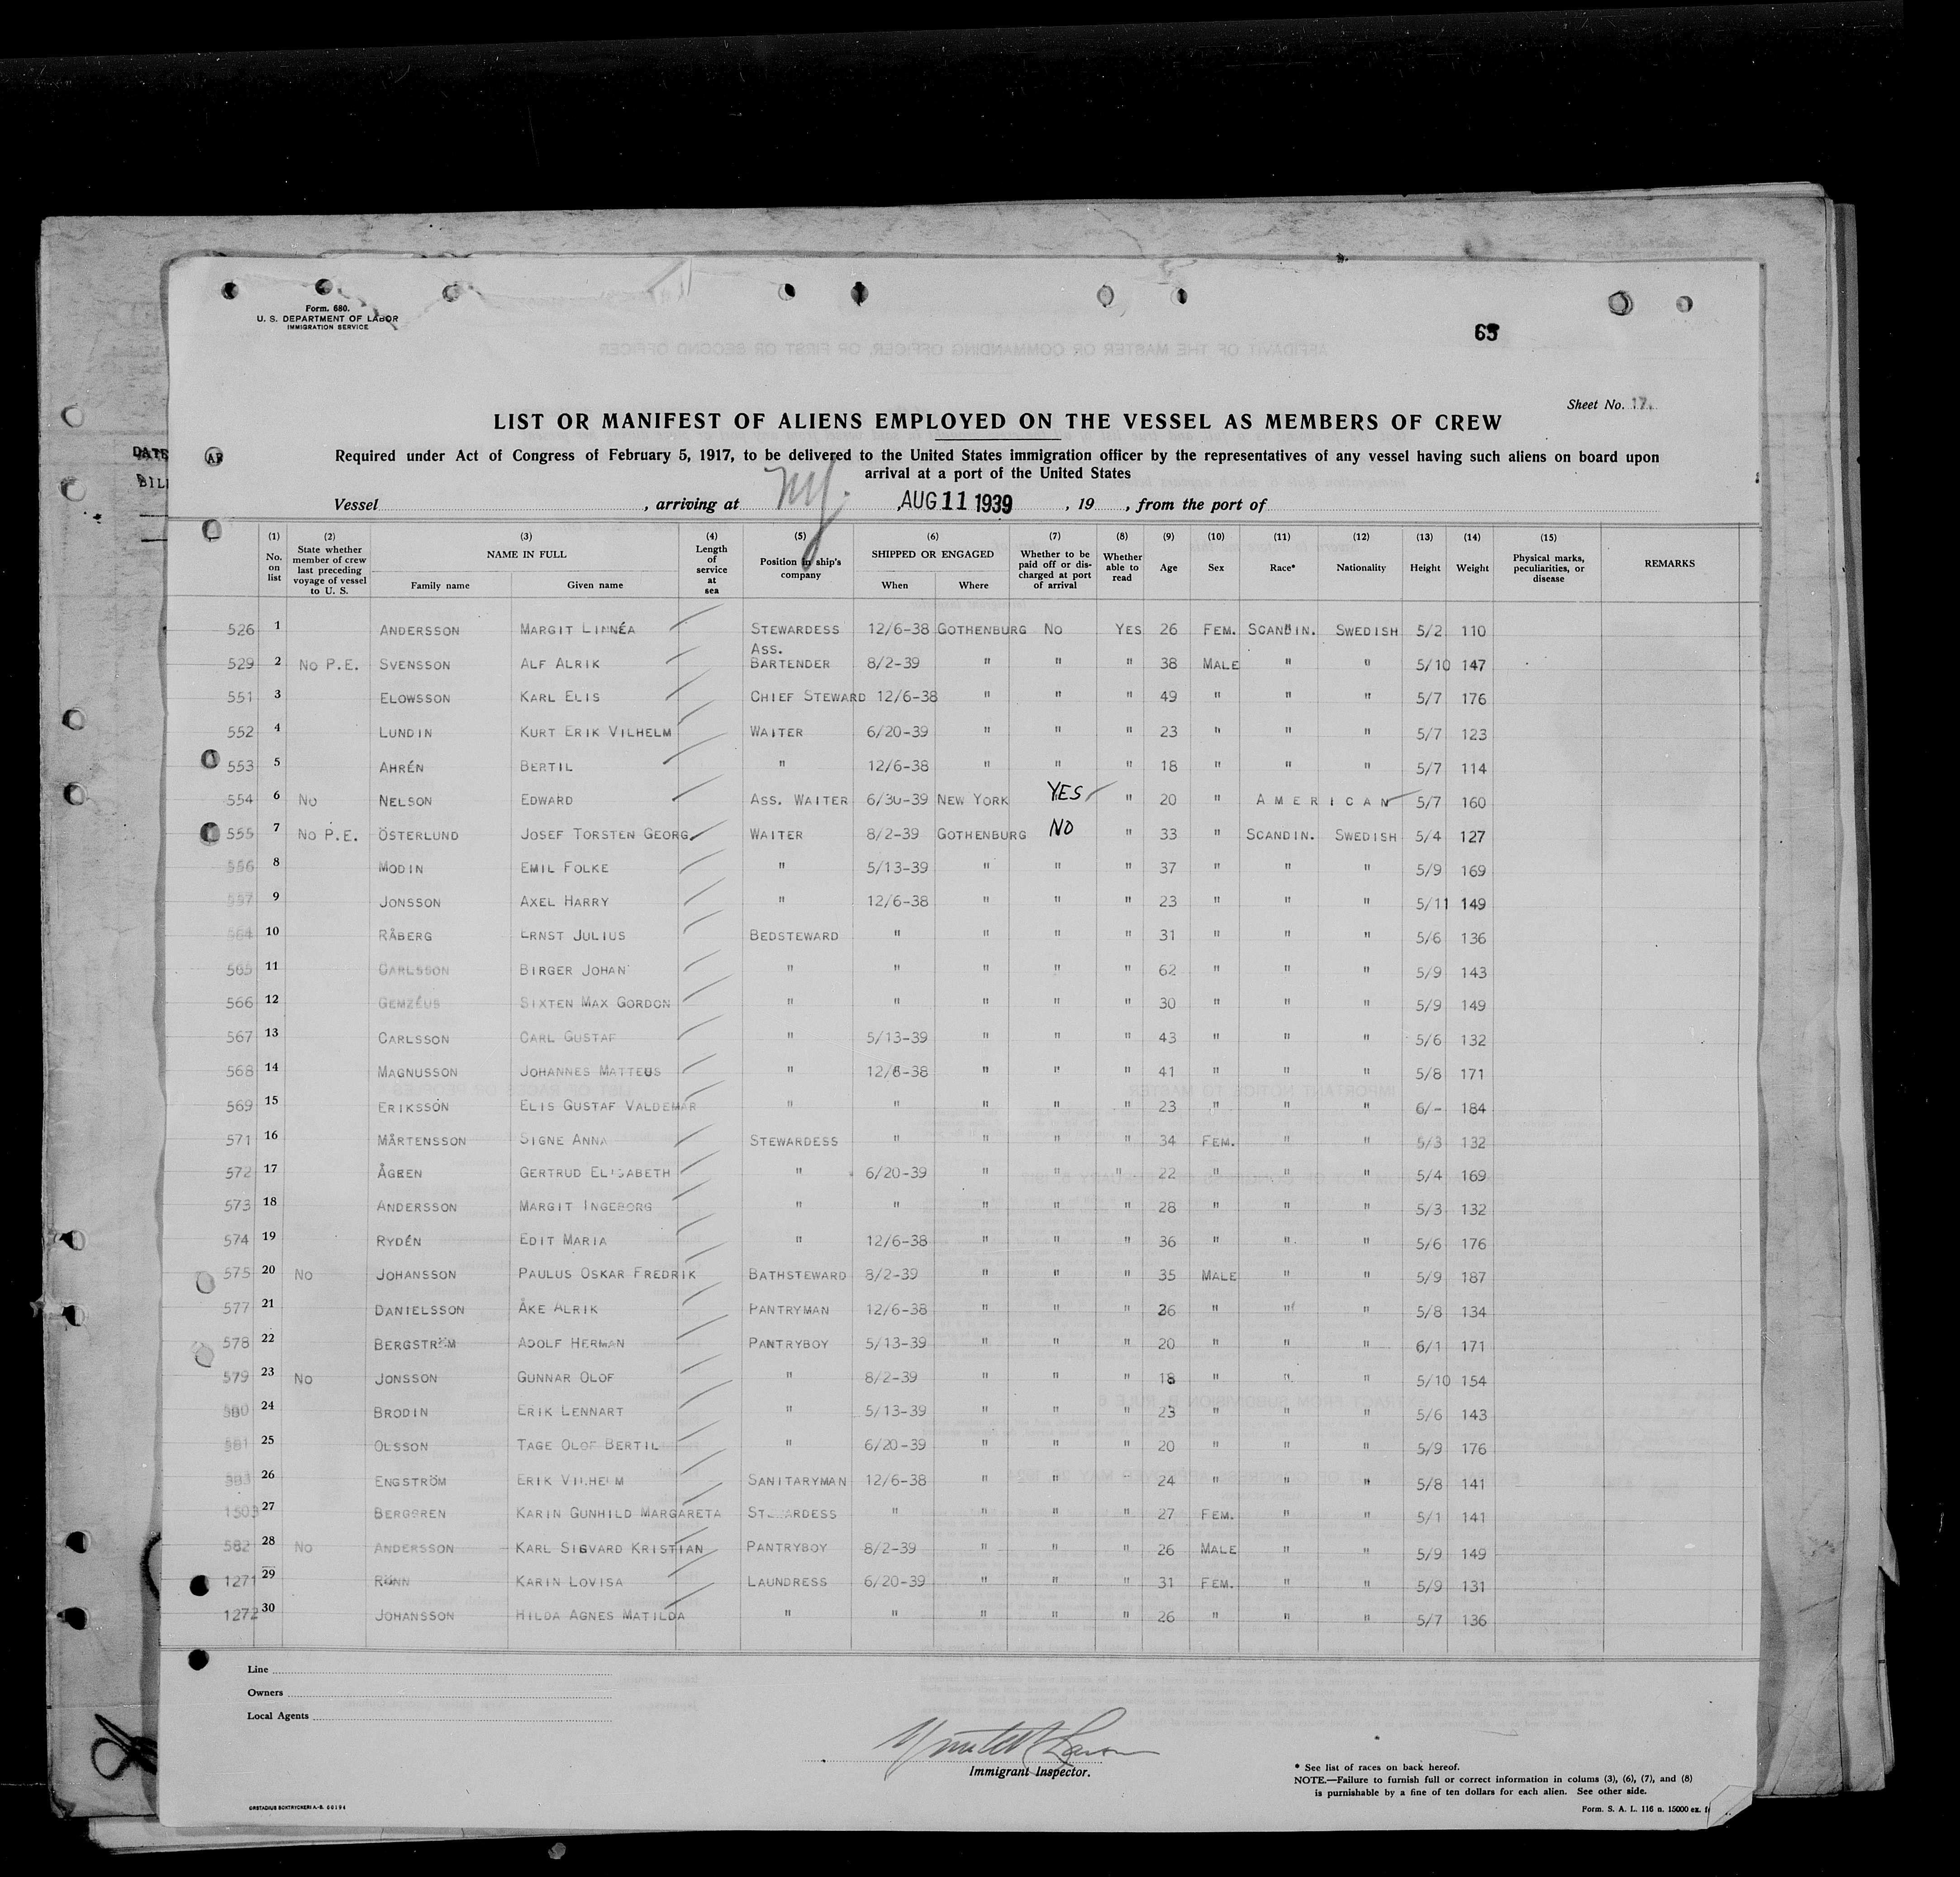 Form. 680.
U. S. DEPARTMENT OF LABOR
IMMIGRATION SERVICE
63
Sheet No. 17.
LIST OR MANIFEST OF ALIENS EMPLOYED ON THE VESSEL AS MEMBERS OF CREW
DATE
BIL
AF
Required under Act of Congress of February 5, 1917, to be delivered to the United States immigration officer by the representatives of any vessel having such aliens on board upon
arrival at a port of the United States
Vessel , arriving at NY. AUG 11 1939 , 19 , from the port of
(1) No. on list (2) State whether member of crew last preceding voyage of vessel to U. S. (3) NAME IN FULL Family name Given name (4) Length of service at sea (5) Position in ship's company (6) SHIPPED OR ENGAGED When Where (7) Whether to be paid off or discharged at port of arrival (8) Whether able to read (9) Age (10) Sex (11) Race* (12) Nationality (13) Height (14) Weight (15) Physical marks, peculiarities, or disease REMARKS
526 1 ANDERSSON MARGIT LINNÉA STEWARDESS 12/6-38 GOTHENBURG NO YES 26 FEM. SCANDIN. SWEDISH 5/2 110
529 2 NO P.E. SVENSSON ALF ALRIK ASS. BARTENDER 8/2-39 " " " 38 MALE " " 5/10 147
551 3 ELOWSSON KARL ELIS CHIEF STEWARD 12/6-38 " " " 49 " " " 5/7 176
552 4 LUNDIN KURT ERIK VILHELM WAITER 6/20-39 " " " 23 " " " 5/7 123
553 5 AHRÉN BERTIL " 12/6-38 " " " 18 " " " 5/7 114
554 6 NO NELSON EDWARD ASS. WAITER 6/30-39 NEW YORK YES " 20 " AMERICAN 5/7 160
555 7 NO P.E. ÖSTERLUND JOSEF TORSTEN GEORG. WAITER 8/2-39 GOTHENBURG NO " 33 " SCANDIN. SWEDISH 5/4 127
556 8 MODIN EMIL FOLKE " 5/13-39 " " " 37 " " " 5/9 169
557 9 JONSSON AXEL HARRY " 12/6-38 " " " 23 " " " 5/11 149
564 10 RÅBERG ERNST JULIUS BEDSTEWARD " " " " 31 " " " 5/6 136
565 11 CARLSSON BIRGER JOHAN " " " " " 62 " " " 5/9 143
566 12 GEMZÉUS SIXTEN MAX GORDON " " " " " 30 " " " 5/9 149
567 13 CARLSSON CARL GUSTAF " 5/13-39 " " " 43 " " " 5/6 132
568 14 MAGNUSSON JOHANNES MATTEUS " 12/6-38 " " " 41 " " " 5/8 171
569 15 ERIKSSON ELIS GUSTAF VALDEMAR " " " " " 23 " " " 6/- 184
571 16 MÅRTENSSON SIGNE ANNA STEWARDESS " " " " 34 FEM. " " 5/3 132
572 17 ÅGREN GERTRUD ELISABETH " 6/20-39 " " " 22 " " " 5/4 169
573 18 ANDERSSON MARGIT INGEBORG " " " " " 28 " " " 5/3 132
574 19 RYDÉN EDIT MARIA " 12/6-38 " " " 36 " " " 5/6 176
575 20 NO JOHANSSON PAULUS OSKAR FREDRIK BATHSTEWARD 8/2-39 " " " 35 MALE " " 5/9 187
577 21 DANIELSSON ÅKE ALRIK PANTRYMAN 12/6-38 " " " 26 " " " 5/8 134
578 22 BERGSTRÖM ADOLF HERMAN PANTRYBOY 5/13-39 " " " 20 " " " 6/1 171
579 23 NO JONSSON GUNNAR OLOF " 8/2-39 " " " 18 " " " 5/10 154
580 24 BRODIN ERIK LENNART " 5/13-39 " " " 23 " " " 5/6 143
581 25 OLSSON TAGE OLOF BERTIL " 6/20-39 " " " 20 " " " 5/9 176
26 ENGSTRÖM ERIK VILHELM SANITARYMAN 12/6-38 " " " 24 " " " 5/8 141
1503 27 BERGGREN KARIN GUNHILD MARGARETA STEWARDESS " " " " 27 FEM. " " 5/1 141
582 28 NO ANDERSSON KARL SIGVARD KRISTIAN PANTRYBOY 8/2-39 " " " 26 MALE " " 5/9 149
1271 29 RÖNN KARIN LOVISA LAUNDRESS 6/20-39 " " " 31 FEM. " " 5/9 131
1272 30 JOHANSSON HILDA AGNES MATILDA " " " " " 26 " " " 5/7 136
Line
Owners
Local Agents
Immigrant Inspector.
* See list of races on back hereof.
NOTE.—Failure to furnish full or correct information in colums (3), (6), (7), and (8)
is punishable by a fine of ten dollars for each alien. See other side.
ORSTADIUS BOKTRYCKERI A.-B. 60194
Form. S. A. L. 116 n. 15000 ex.